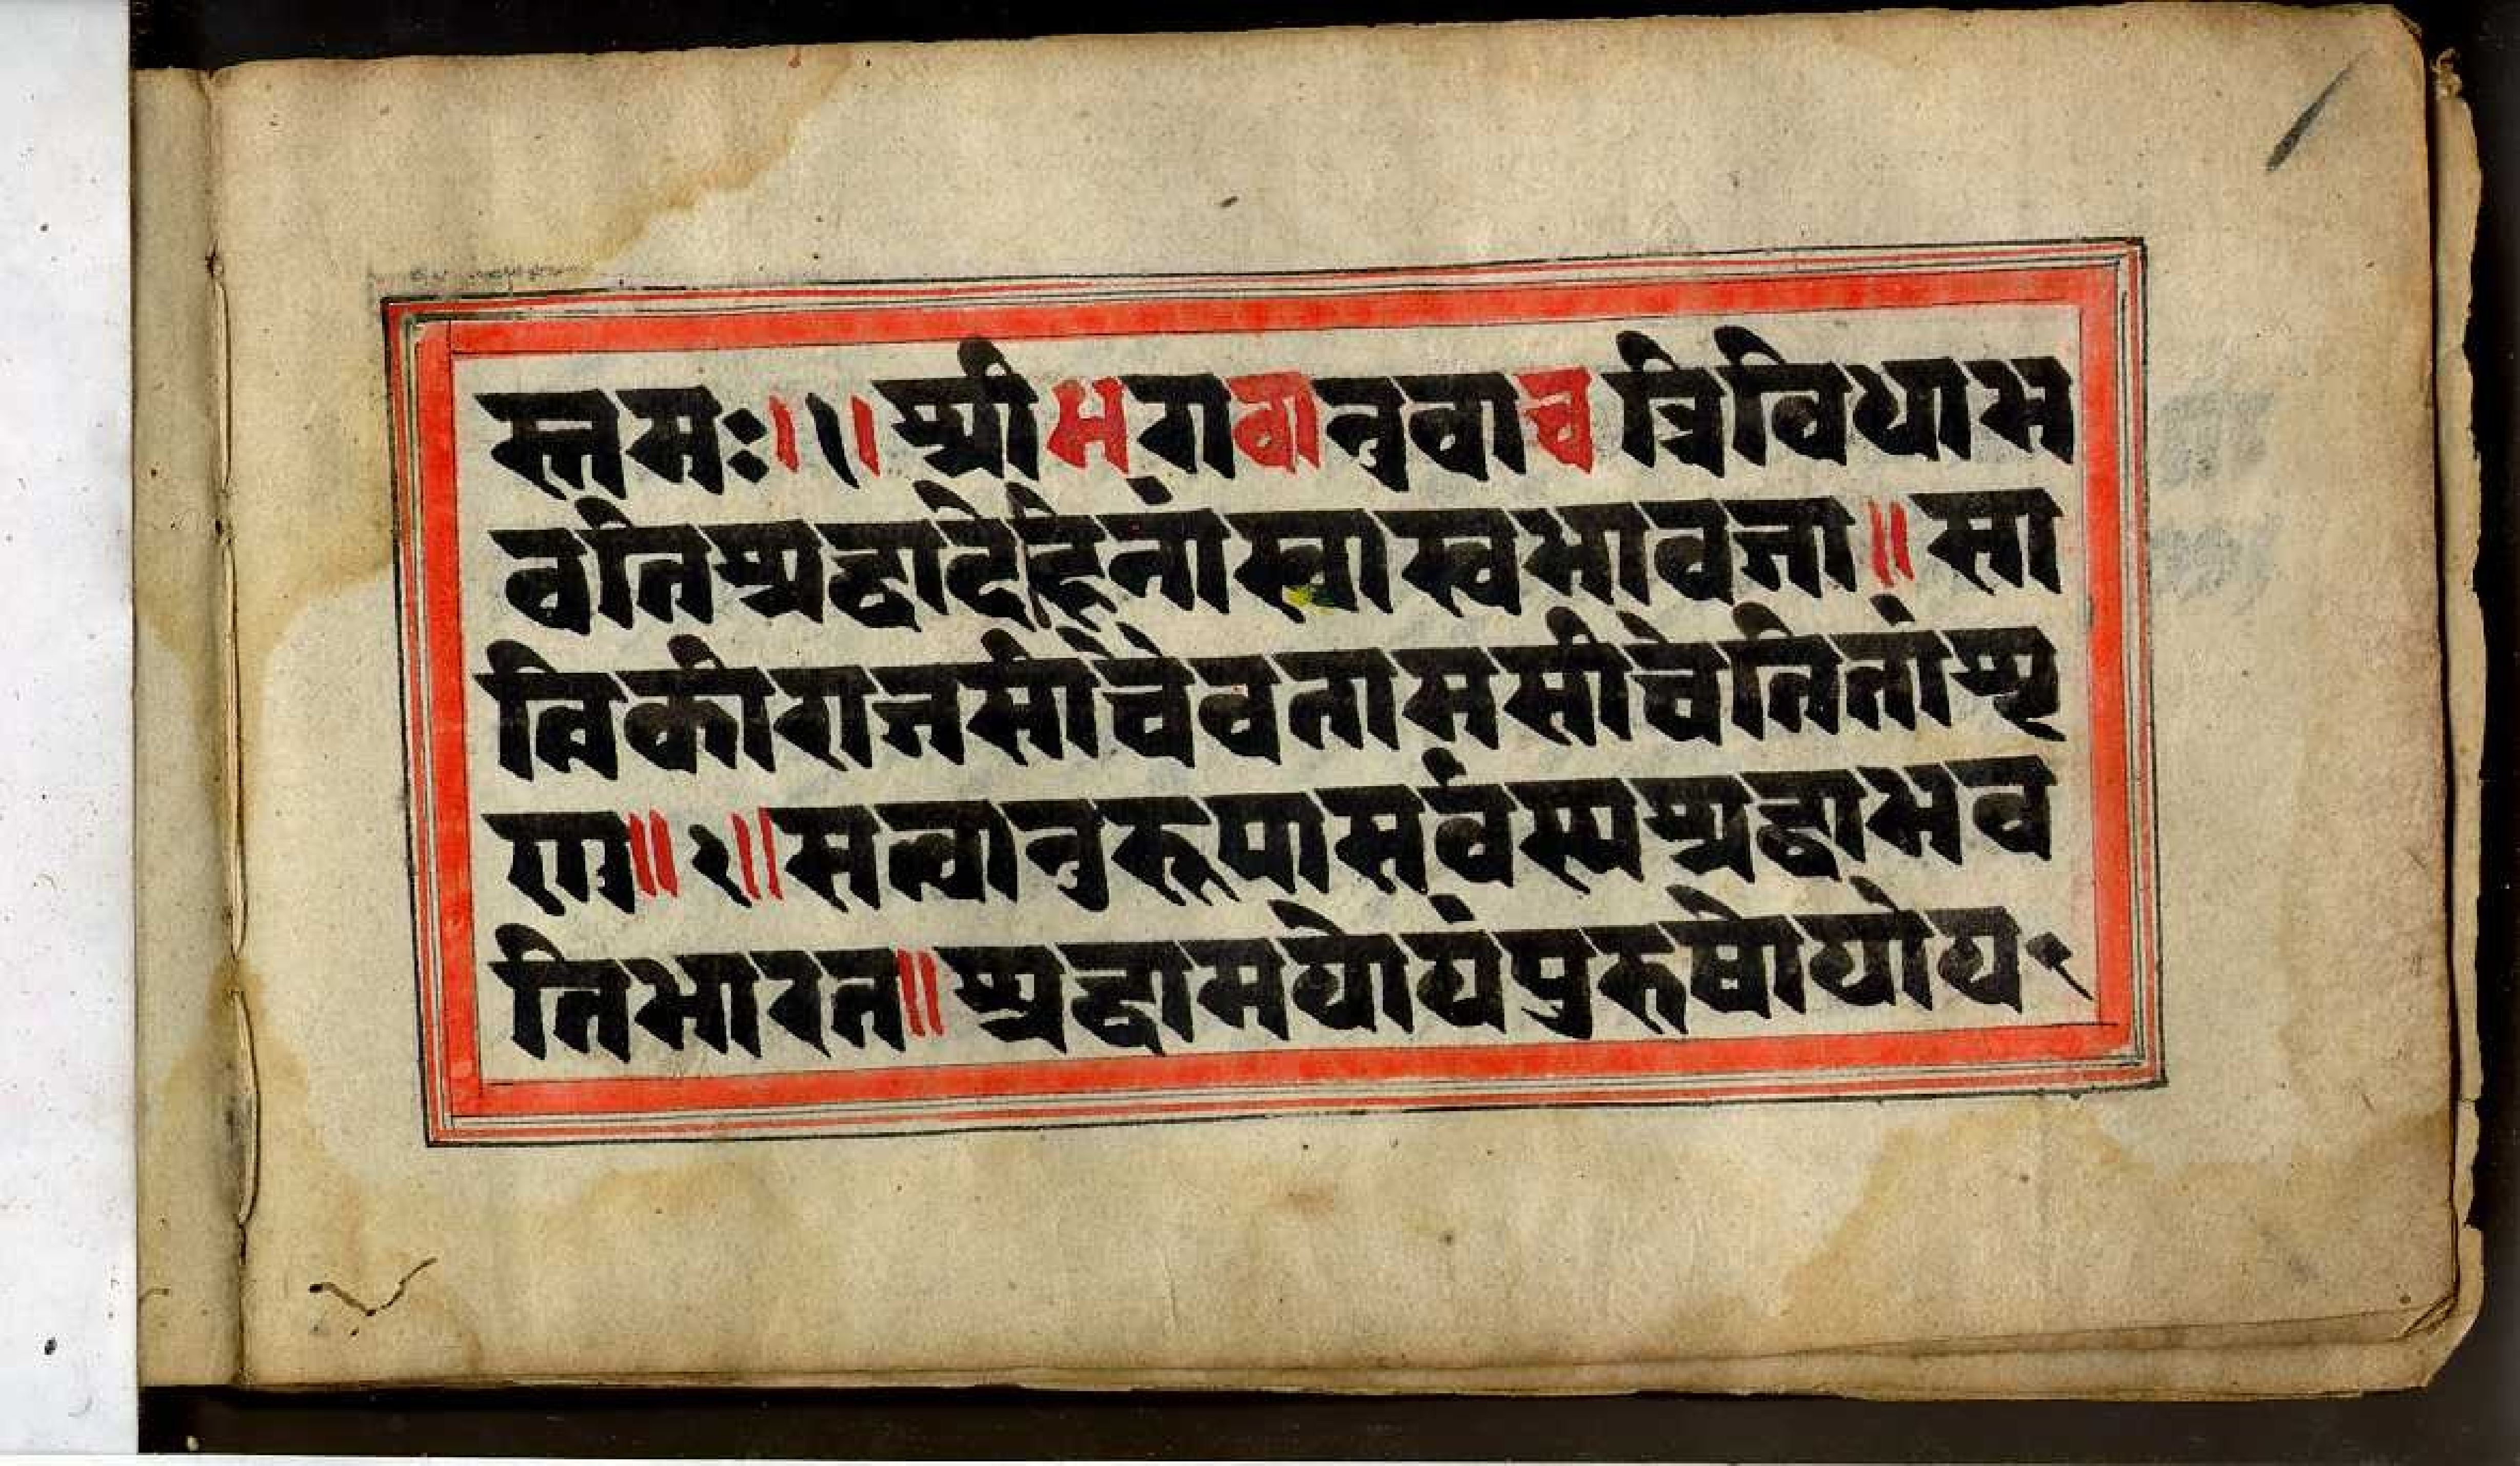 स्तमः।१।श्रीभगवानुवाच त्रिविधाभ
वतिश्रद्धादेहिनांस्वास्वभावजा॥सा
त्विकीराजसीचैवतामसीचेतितांशृ
णु॥२॥सत्वानुरूपासर्वस्यश्रद्धाभव
तिभारत॥श्रद्धामयोयंपुरुषोयोय१